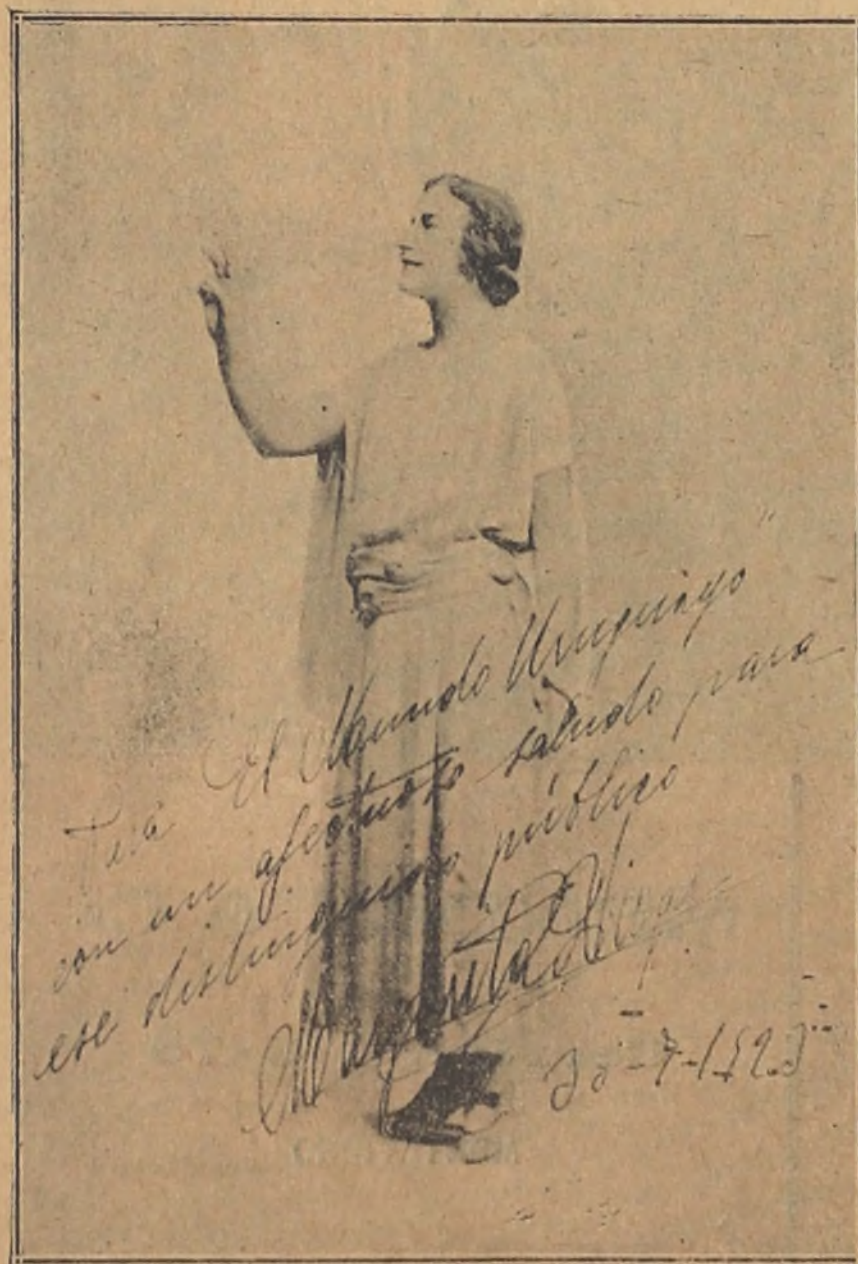 Para "El Mundo Uruguayo"
con un afectuoso saludo para
ese distinguido público
Margarita
30-7-1923